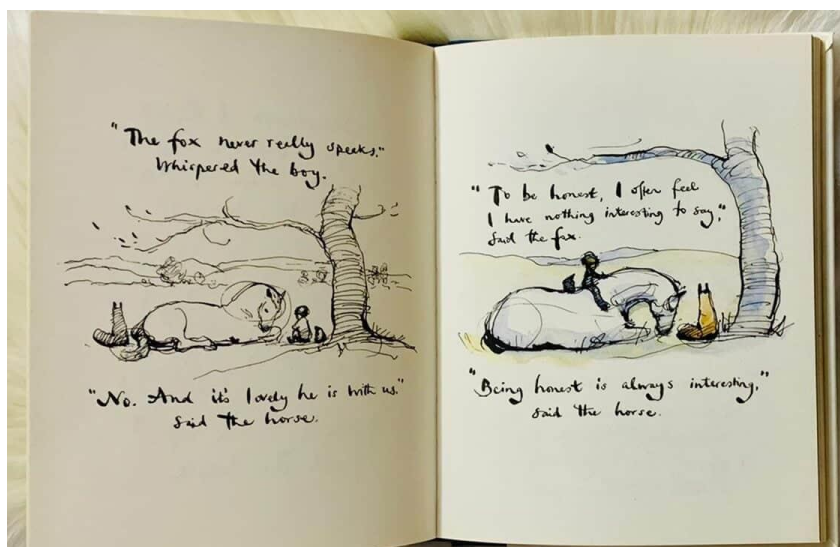 "The fox never really speaks."
Whispered the boy.
"No. And it's lovely he is with us."
Said the horse.
"To be honest, I often feel
I have nothing interesting to say,"
said the fox.
"Being honest is always interesting,"
said the horse.